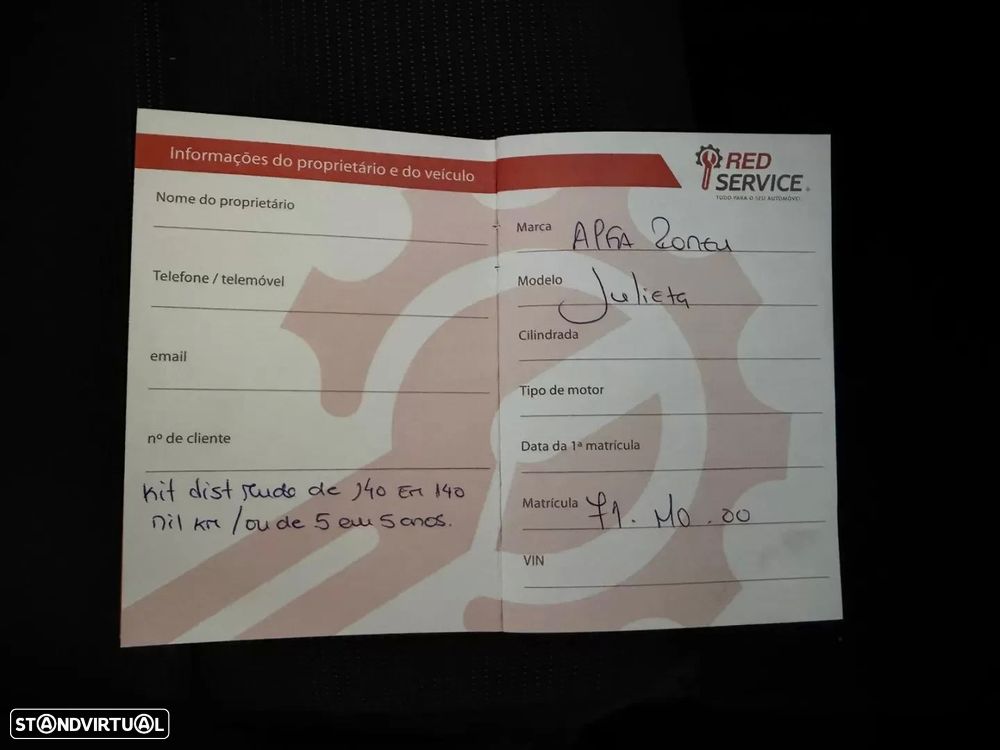 Informações do proprietário e do veículo
Nome do proprietário
Telefone / telemóvel
email
nº de cliente
Kit dist de 140 em 140
mil km /ou de 5 em 5 anos.
RED
SERVICE
TUDO PARA O SEU AUTOMÓVEL
Marca Alfa Romeu
Modelo Julieta
Cilindrada
Tipo de motor
Data da 1ª matrícula
Matrícula 71. MO . 00
VIN
STANDVIRTUAL